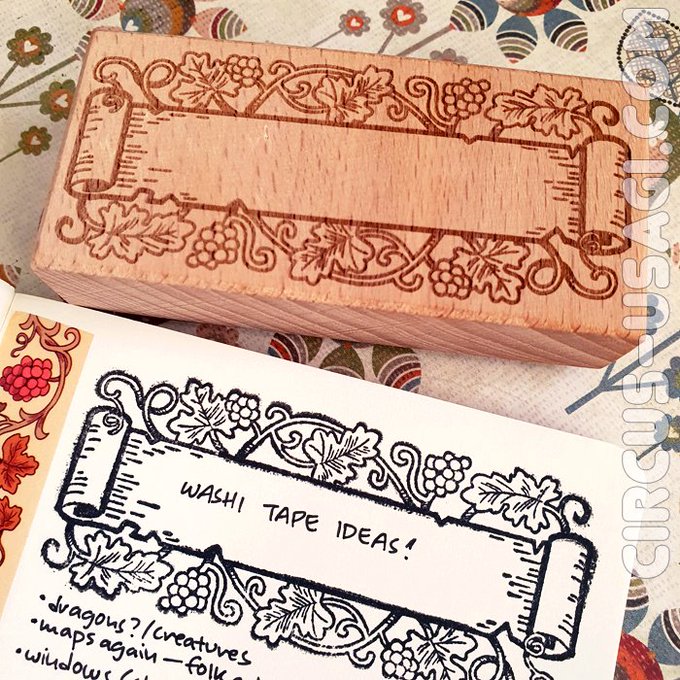 WASHI TAPE IDEAS!
• dragons?/creatures
• maps again — folk
• windows
CIRCUS-USAGI.COM